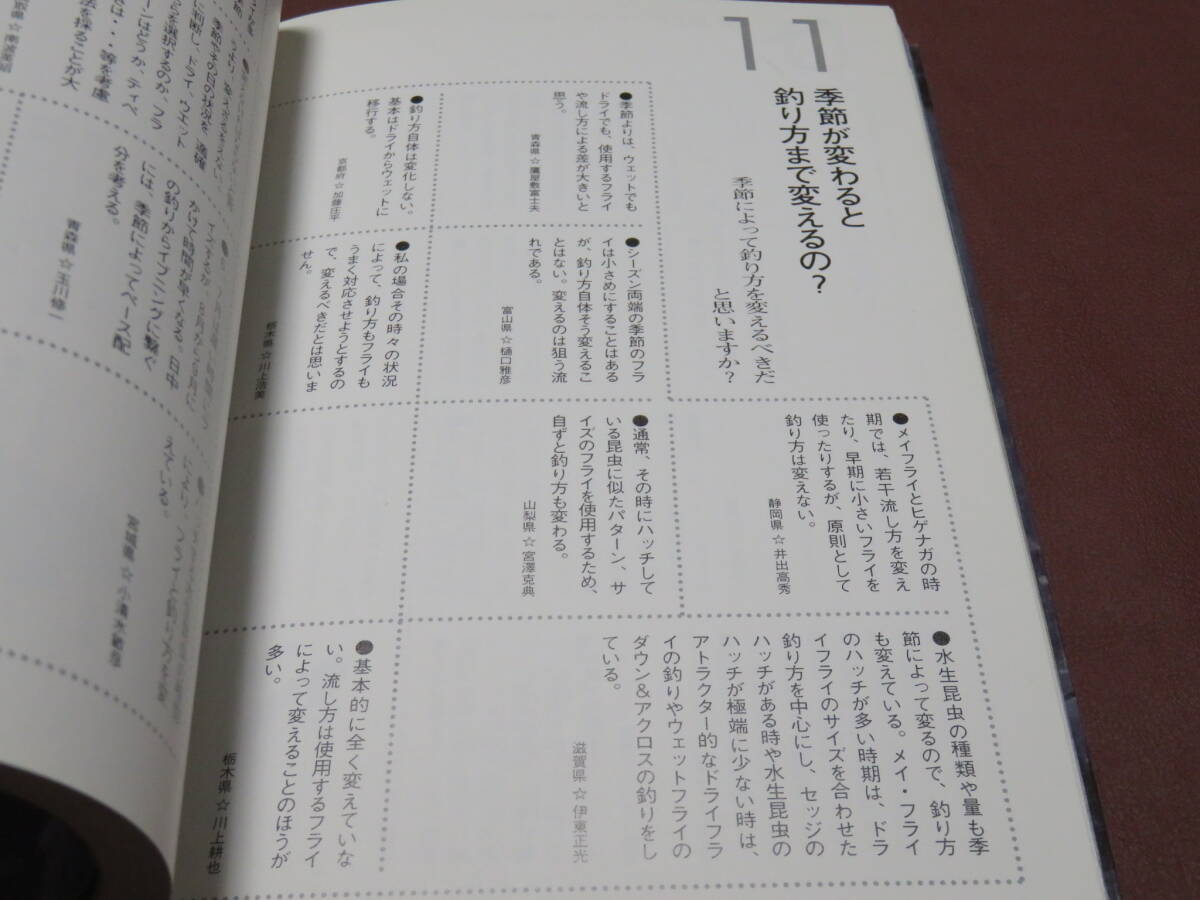 11
季節が変わると
釣り方まで変えるの？
季節によって釣り方を変えるべきだ
と思いますか？
●季節よりは、ウェットでも
ドライでも、使用するフライ
や流し方による差が大きいと
思う。
青森県☆鷹屋敷富士夫
●釣り方自体は変化しない。
基本はドライからウェットに
移行する。
京都府☆加藤庄平
●シーズン両端の季節のフラ
イは小さめにすることはある
が、釣り方自体そう変えるこ
とはない。変えるのは狙う流
れである。
富山県☆樋口雅彦
●私の場合その時々の状況
によって、釣り方もフライも
うまく対応させようとするの
で、変えるべきだとは思いま
せん。
栃木県☆川上浩美
●メイフライとヒゲナガの時
期では、若干流し方を変え
たり、早期に小さいフライを
使ったりするが、原則として
釣り方は変えない。
静岡県☆井出高秀
●通常、その時にハッチして
いる昆虫に似たパターン、サ
イズのフライを使用するため、
自ずと釣り方も変わる。
山梨県☆宮澤克典
●水生昆虫の種類や量も季
節によって変るので、釣り方
も変えている。メイ・フライ
のハッチが多い時期は、ドラ
イフライのサイズを合わせた
釣り方を中心にし、セッジの
ハッチがある時や水生昆虫の
ハッチが極端に少ない時は、
アトラクター的なドライフラ
イの釣りやウェットフライの
ダウン＆アクロスの釣りをし
ている。
滋賀県☆伊東正光
●基本的に全く変えていな
い。流し方は使用するフライ
によって変えることのほうが
多い。
栃木県☆川上耕也
かけて時間が早くなる。日中
の釣りからイブニングに繋ぐ
には、季節によってペース配
分を考える。
青森県☆玉川修一
えている。
宮城県☆小濱
に判断し、ドライ、ウェット
らを選択するのか、フラ
ーンはどうか、ティペ
は・・等を考慮
法を採ることが大